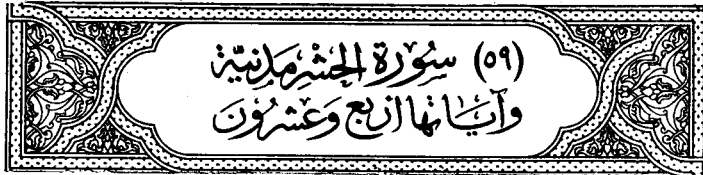 (٥٩) سُورَة الحَشْر مَدنيَّة
وَآيَاتها اربَع وَعشرُونَ